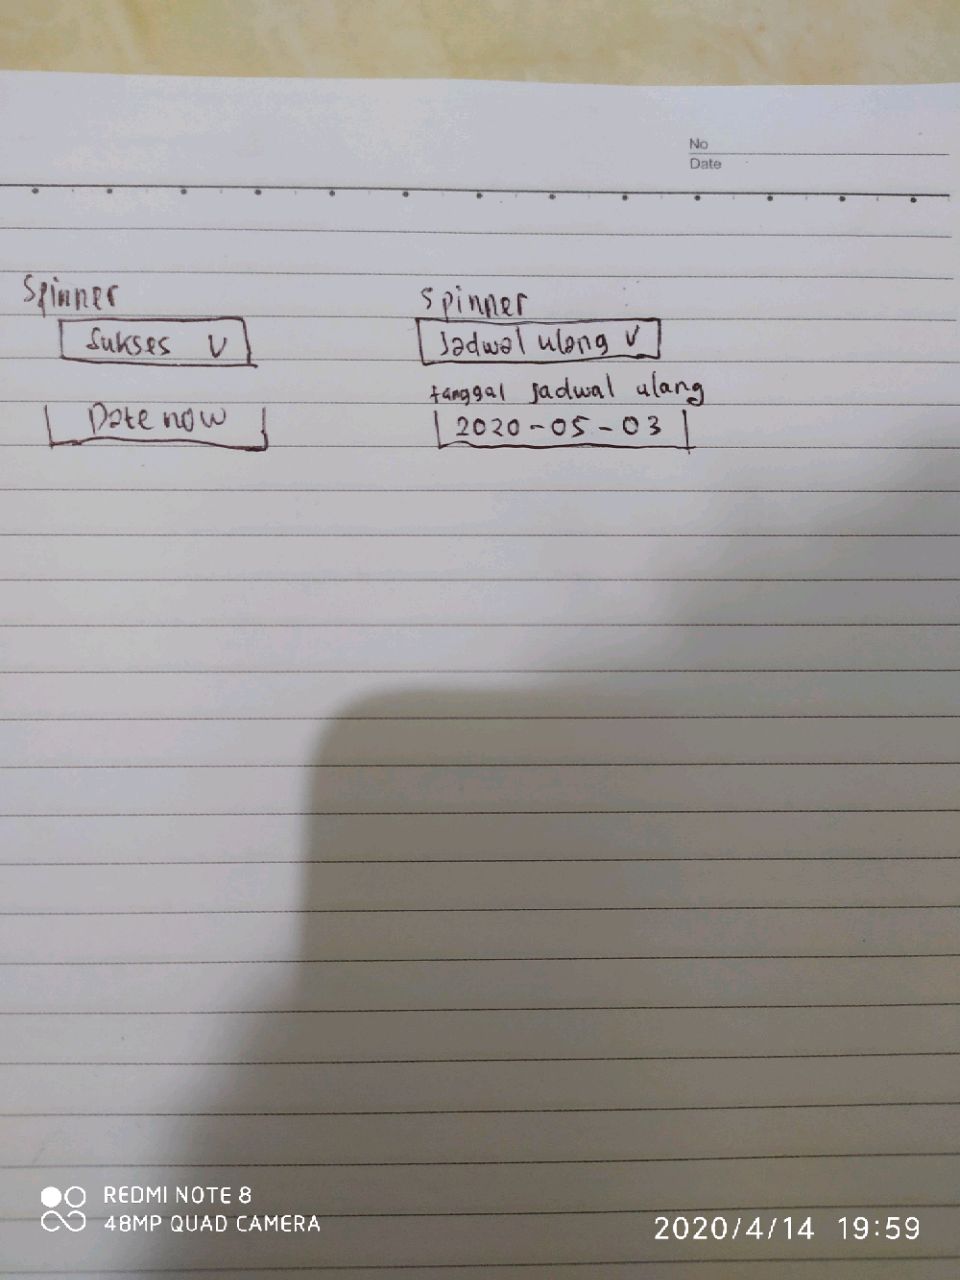 No
Date
Spinner
Sukses V
Date now
Spinner
Jadwal ulang V
tanggal jadwal ulang
2020-05-03
REDMI NOTE 8
48MP QUAD CAMERA
2020/4/14 19:59